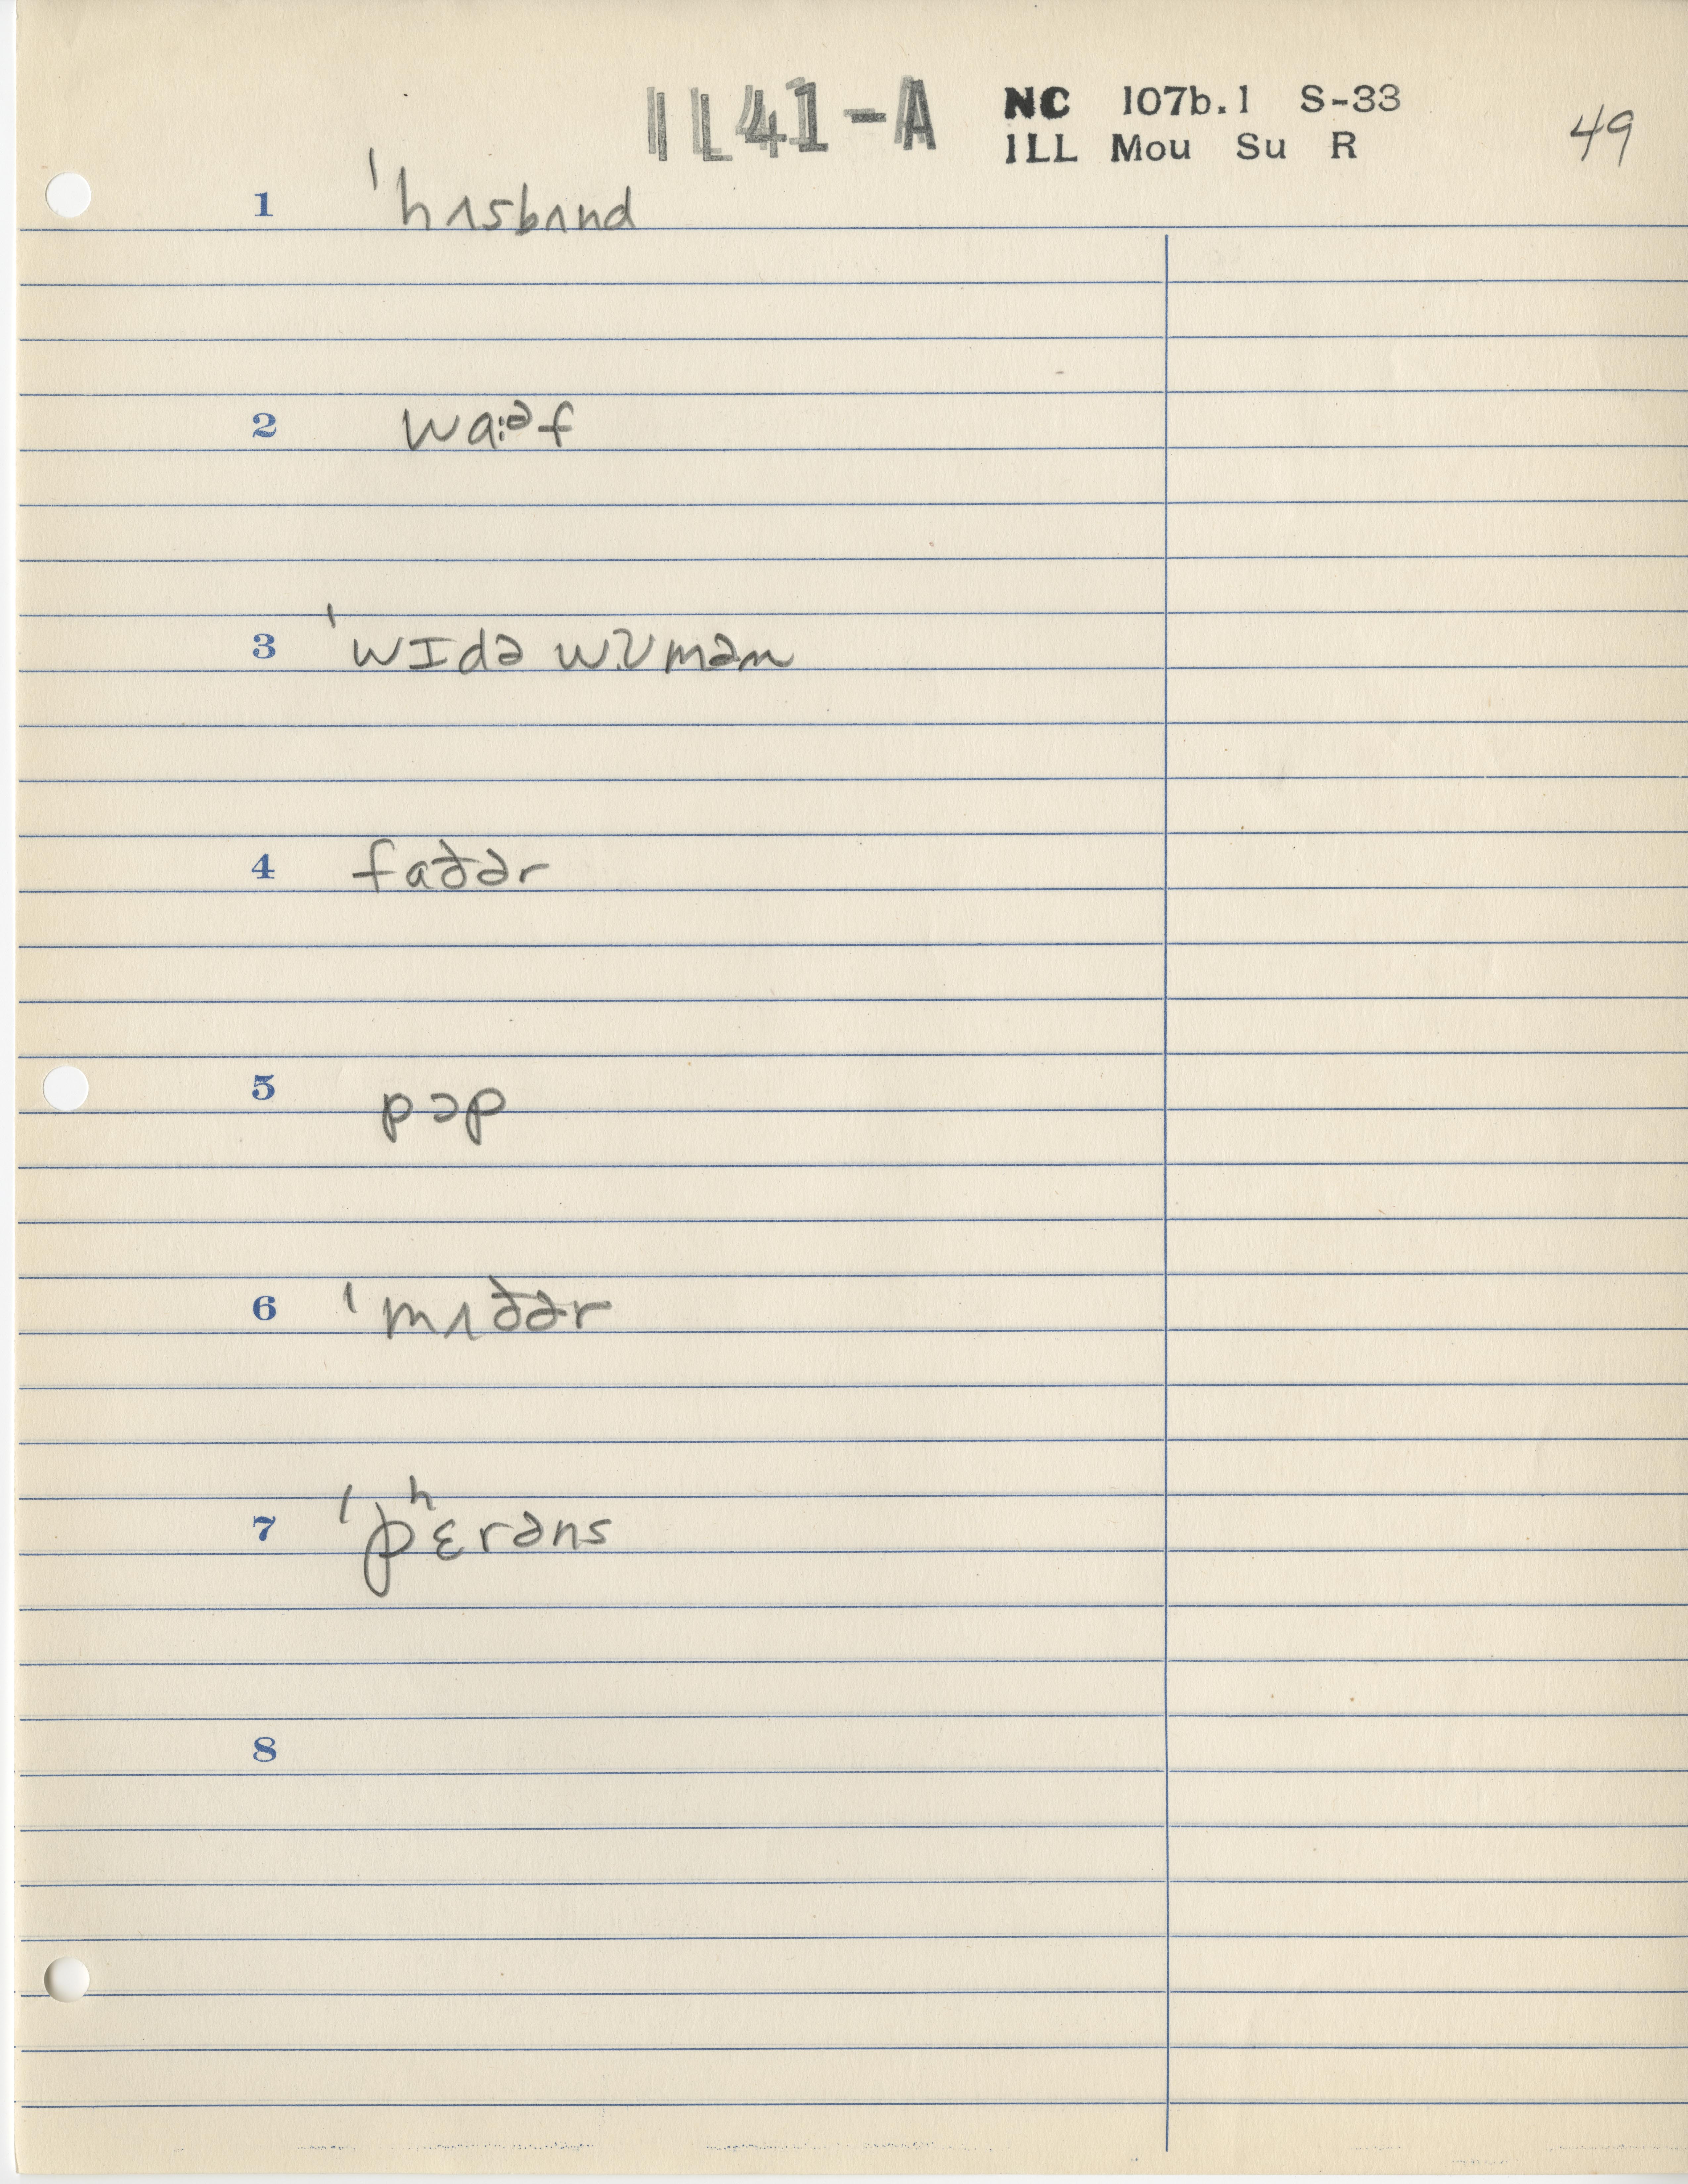 IL41-A NC 107b.1 S-33 49
ILL Mou Su R
1 ˈhʌsbʌnd
2 waːᵊf
3 ˈwɪdə wʊmən
4 faðər
5 pɔp
6 ˈmʌðər
7 ˈpʰɛrəns
8